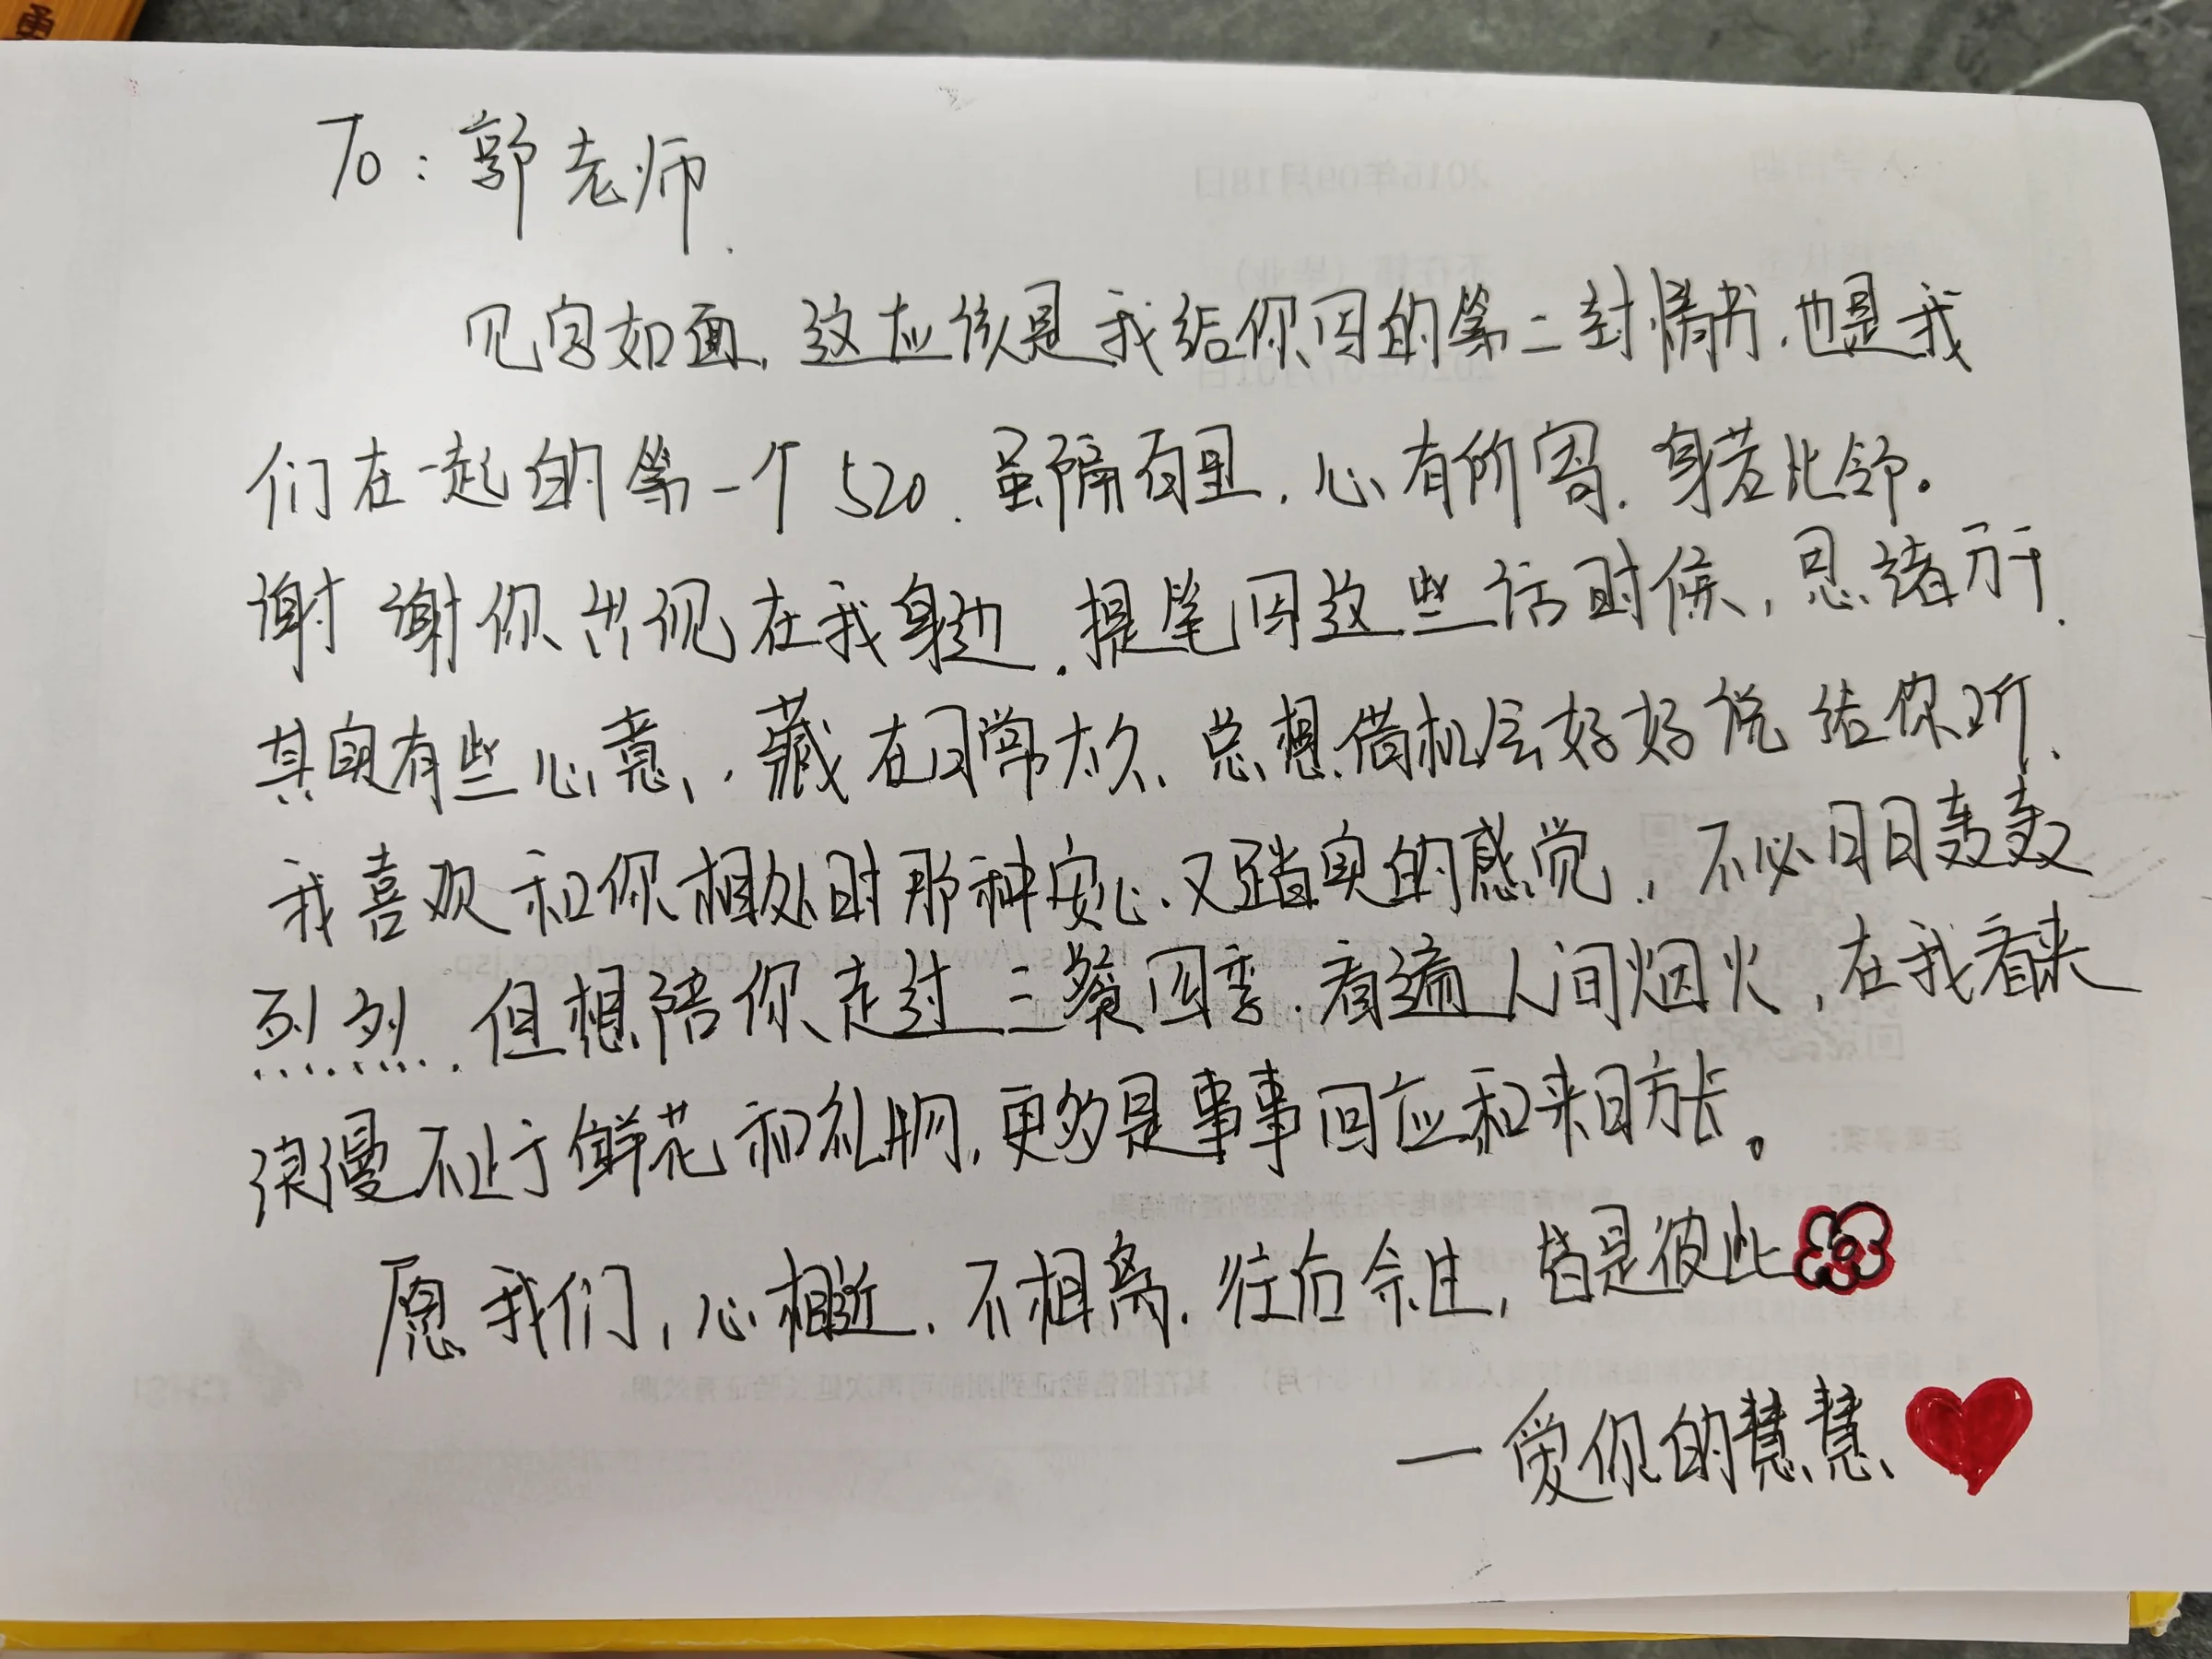 To：郭老师.
见字如面，这应该是我给你写的第二封情书，也是我
们在一起的第一个520．虽隔百里，心有所寄．身若比邻。
谢谢你出现在我身边．提笔写这些话时候，思绪万千．
其实有些心意，藏在日常太久、总想借机会好好说给你听、
我喜欢和你相处时那种安心、又踏实的感觉，不必日日轰轰
烈烈．但想陪你走过三餐四季．看遍人间烟火，在我看来
浪漫不止于鲜花和礼物，更多的是事事回应和来日方长。
愿我们，心相近、不相离．往后余生，皆是彼此
一爱你的慧慧、
2016年09月18日